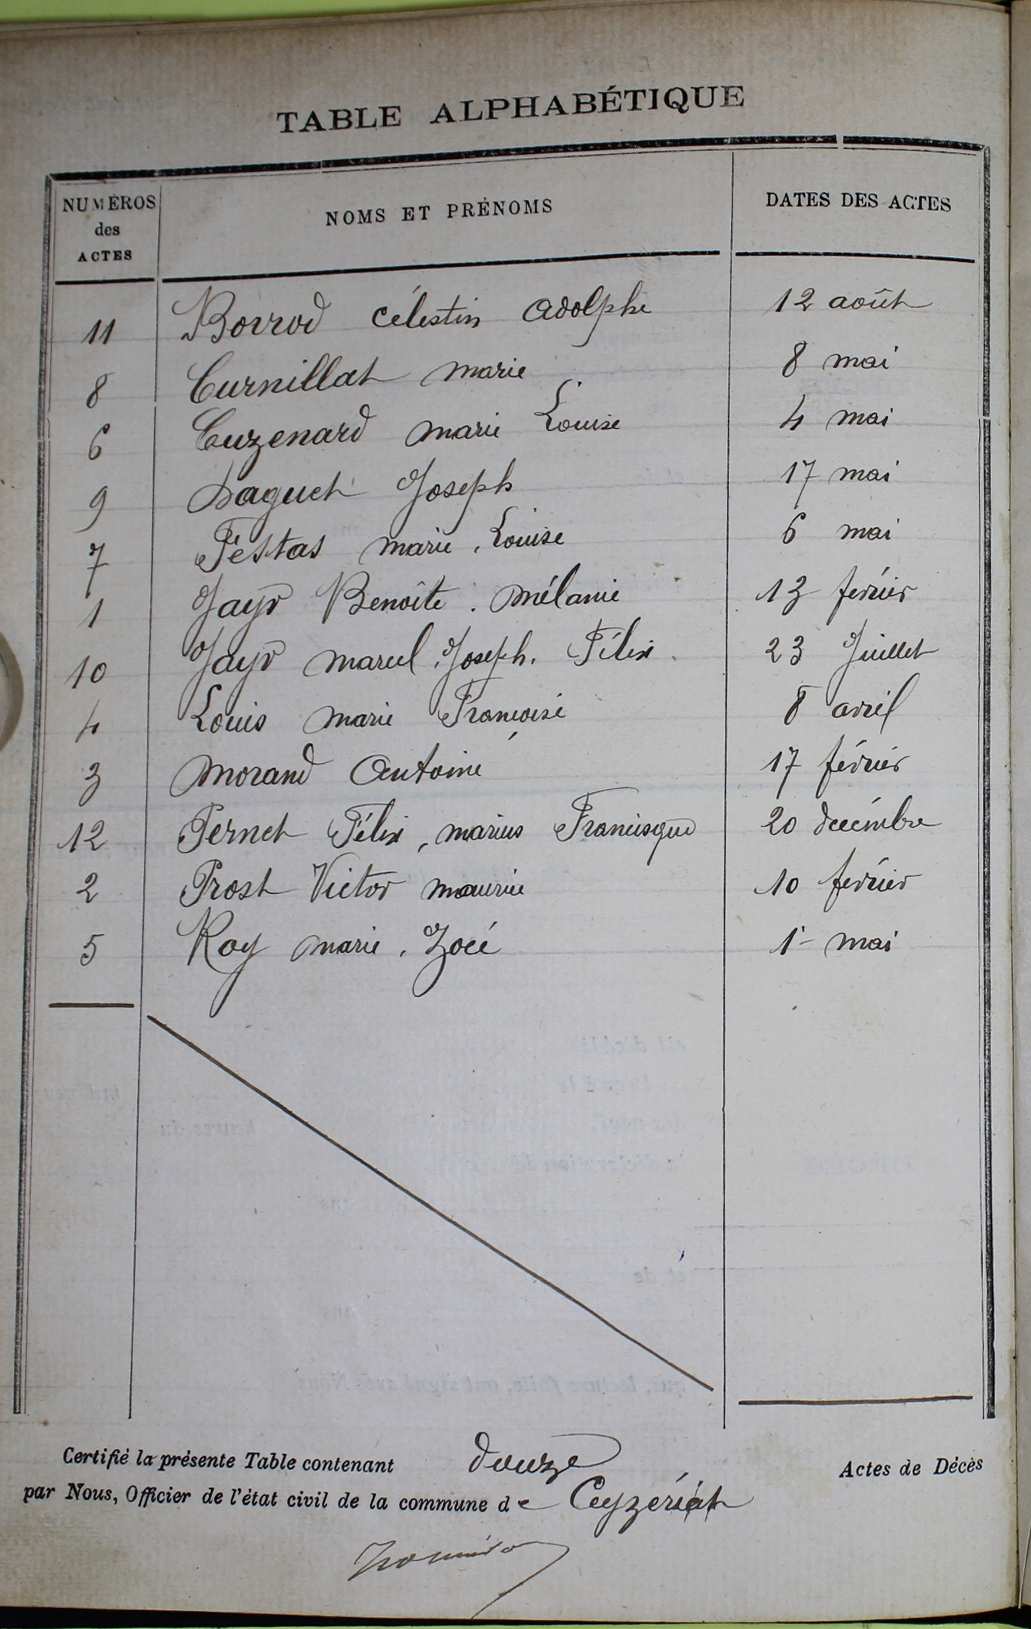 TABLE ALPHABÉTIQUE
NUMÉROS des ACTES NOMS ET PRÉNOMS DATES DES ACTES
11 Borrod Célestin Adolphe 12 août
8 Curnillat Marie 8 mai
6 Cuzenard Marie Louise 4 mai
9 Daguet Joseph 17 mai
7 Festas Marie, Louise 6 mai
1 Jayr Benoîte. Mélanie 13 ferier
10 Jayr Marcel, Joseph. Félix 23 Juillet
4 Louis Marie Françoise 8 avril
3 Morand Antoine 17 février
12 Pernet Félix, Marius Francisque 20 décembre
2 Prost Victor Maurice 10 ferier
5 Roy Marie. Zoé 1er mai
Certifié la présente Table contenant douze Actes de Décès
par Nous, Officier de l'état civil de la commune de Ceyzériat